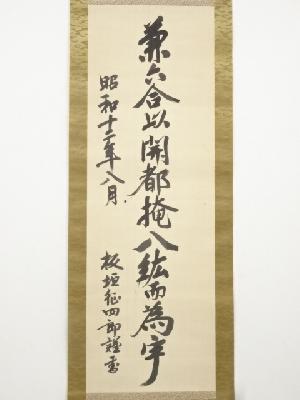 兼六合以開都掩八紘而為宇
昭和十二年八月
板垣征四郎謹書